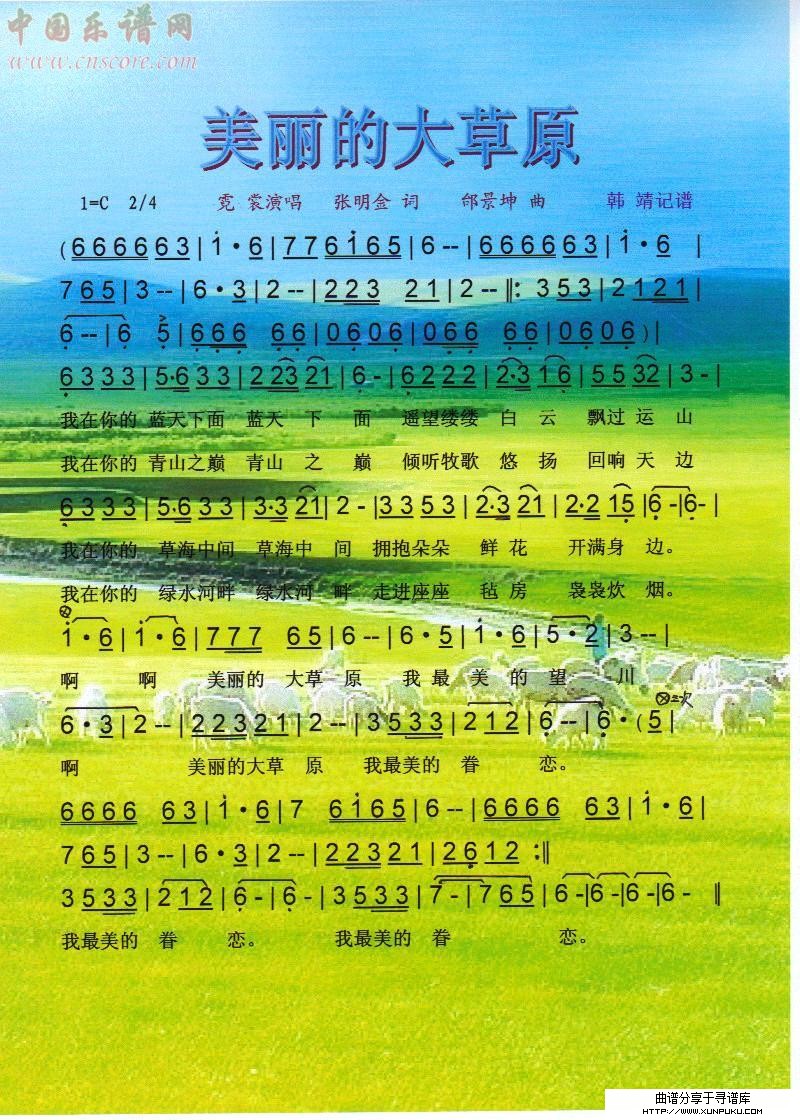 中国乐谱网
www.cnscore.com
美丽的大草原
1=C 2/4 霓裳演唱 张明金 词 邰景坤 曲 韩 靖记谱
( 6 6 6 6 6 3 | 1 · 6 | 7 7 6 1 6 5 | 6 -- | 6 6 6 6 6 3 | 1 · 6 |
7 6 5 | 3 -- | 6 · 3 | 2 -- | 2 2 3 2 1 | 2 -- ‖: 3 5 3 | 2 1 2 1 |
6 -- | 6 5 | 6 6 6 6 6 | 0 6 0 6 | 0 6 6 6 6 | 0 6 0 6 ) |
6 3 3 3 | 5·6 3 3 | 2 2 3 2 1 | 6 - | 6 2 2 2 | 2·3 1 6 | 5 5 3 2 | 3 - |
我在你的 蓝天下面 蓝天 下 面 遥望缕缕 白 云 飘过 运 山
我在你的 青山之巅 青山 之 巅 倾听牧歌 悠 扬 回响 天 边
6 3 3 3 | 5·6 3 3 | 3·3 2 1 | 2 - | 3 3 5 3 | 2·3 2 1 | 2·2 1 5 | 6 - | 6 - |
我在你的 草海中间 草海中 间 拥抱朵朵 鲜 花 开满身 边。
我在你的 绿水河畔 绿水河 畔 走进座座 毡 房 袅袅炊 烟。
1 · 6 | 1 · 6 | 7 7 7 6 5 | 6 -- | 6 · 5 | 1 · 6 | 5 · 2 | 3 -- |
啊 啊 美丽的 大草 原 我 最 美 的 望 川
6 · 3 | 2 -- | 2 2 3 2 1 | 2 -- | 3 5 3 3 | 2 1 2 | 6 -- | 6 · ( 5 |
啊 美丽的大草 原 我最美的 眷 恋。
6 6 6 6 6 3 | 1 · 6 | 7 6 1 6 5 | 6 -- | 6 6 6 6 6 3 | 1 · 6 |
7 6 5 | 3 -- | 6 · 3 | 2 -- | 2 2 3 2 1 | 2 6 1 2 :‖
3 5 3 3 | 2 1 2 | 6 - | 6 - | 3 5 3 3 | 7 - | 7 6 5 | 6 - | 6 - | 6 - | 6 - ‖
我最美的 眷 恋。 我最美的 眷 恋。
曲谱分享于寻谱库
HTTP://WWW.XUNPUKU.COM